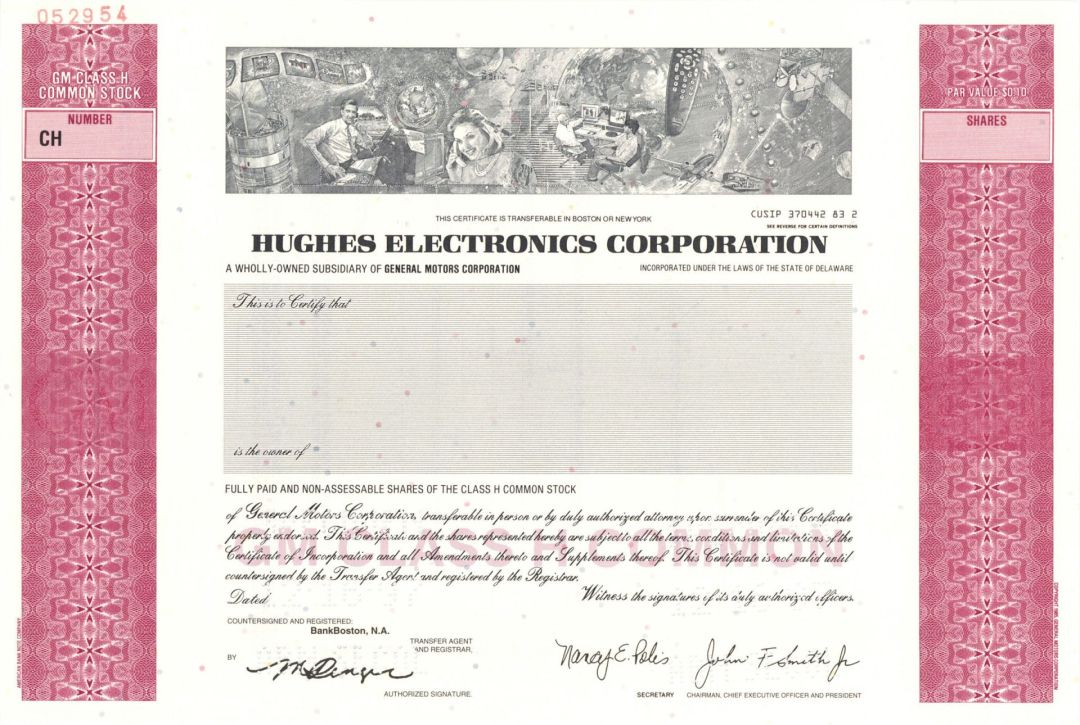 052954
GM CLASS H
COMMON STOCK
NUMBER
CH
PAR VALUE $0.10
SHARES
THIS CERTIFICATE IS TRANSFERABLE IN BOSTON OR NEW YORK
CUSIP 370442 83 2
SEE REVERSE FOR CERTAIN DEFINITIONS
HUGHES ELECTRONICS CORPORATION
A WHOLLY-OWNED SUBSIDIARY OF GENERAL MOTORS CORPORATION
INCORPORATED UNDER THE LAWS OF THE STATE OF DELAWARE
This is to Certify that
is the owner of
FULLY PAID AND NON-ASSESSABLE SHARES OF THE CLASS H COMMON STOCK
of General Motors Corporation, transferable in person or by duly authorized attorney upon surrender of this Certificate
properly endorsed. This Certificate and the shares represented hereby are subject to all the terms, conditions and limitations of the
Certificate of Incorporation and all Amendments thereto and Supplements thereof. This Certificate is not valid until
countersigned by the Transfer Agent and registered by the Registrar.
Dated
Witness the signatures of its duly authorized officers.
COUNTERSIGNED AND REGISTERED:
BankBoston, N.A.
TRANSFER AGENT
AND REGISTRAR,
BY
AUTHORIZED SIGNATURE.
Nancy E. Polis
John F Smith Jr
SECRETARY
CHAIRMAN, CHIEF EXECUTIVE OFFICER AND PRESIDENT
AMERICAN BANK NOTE COMPANY